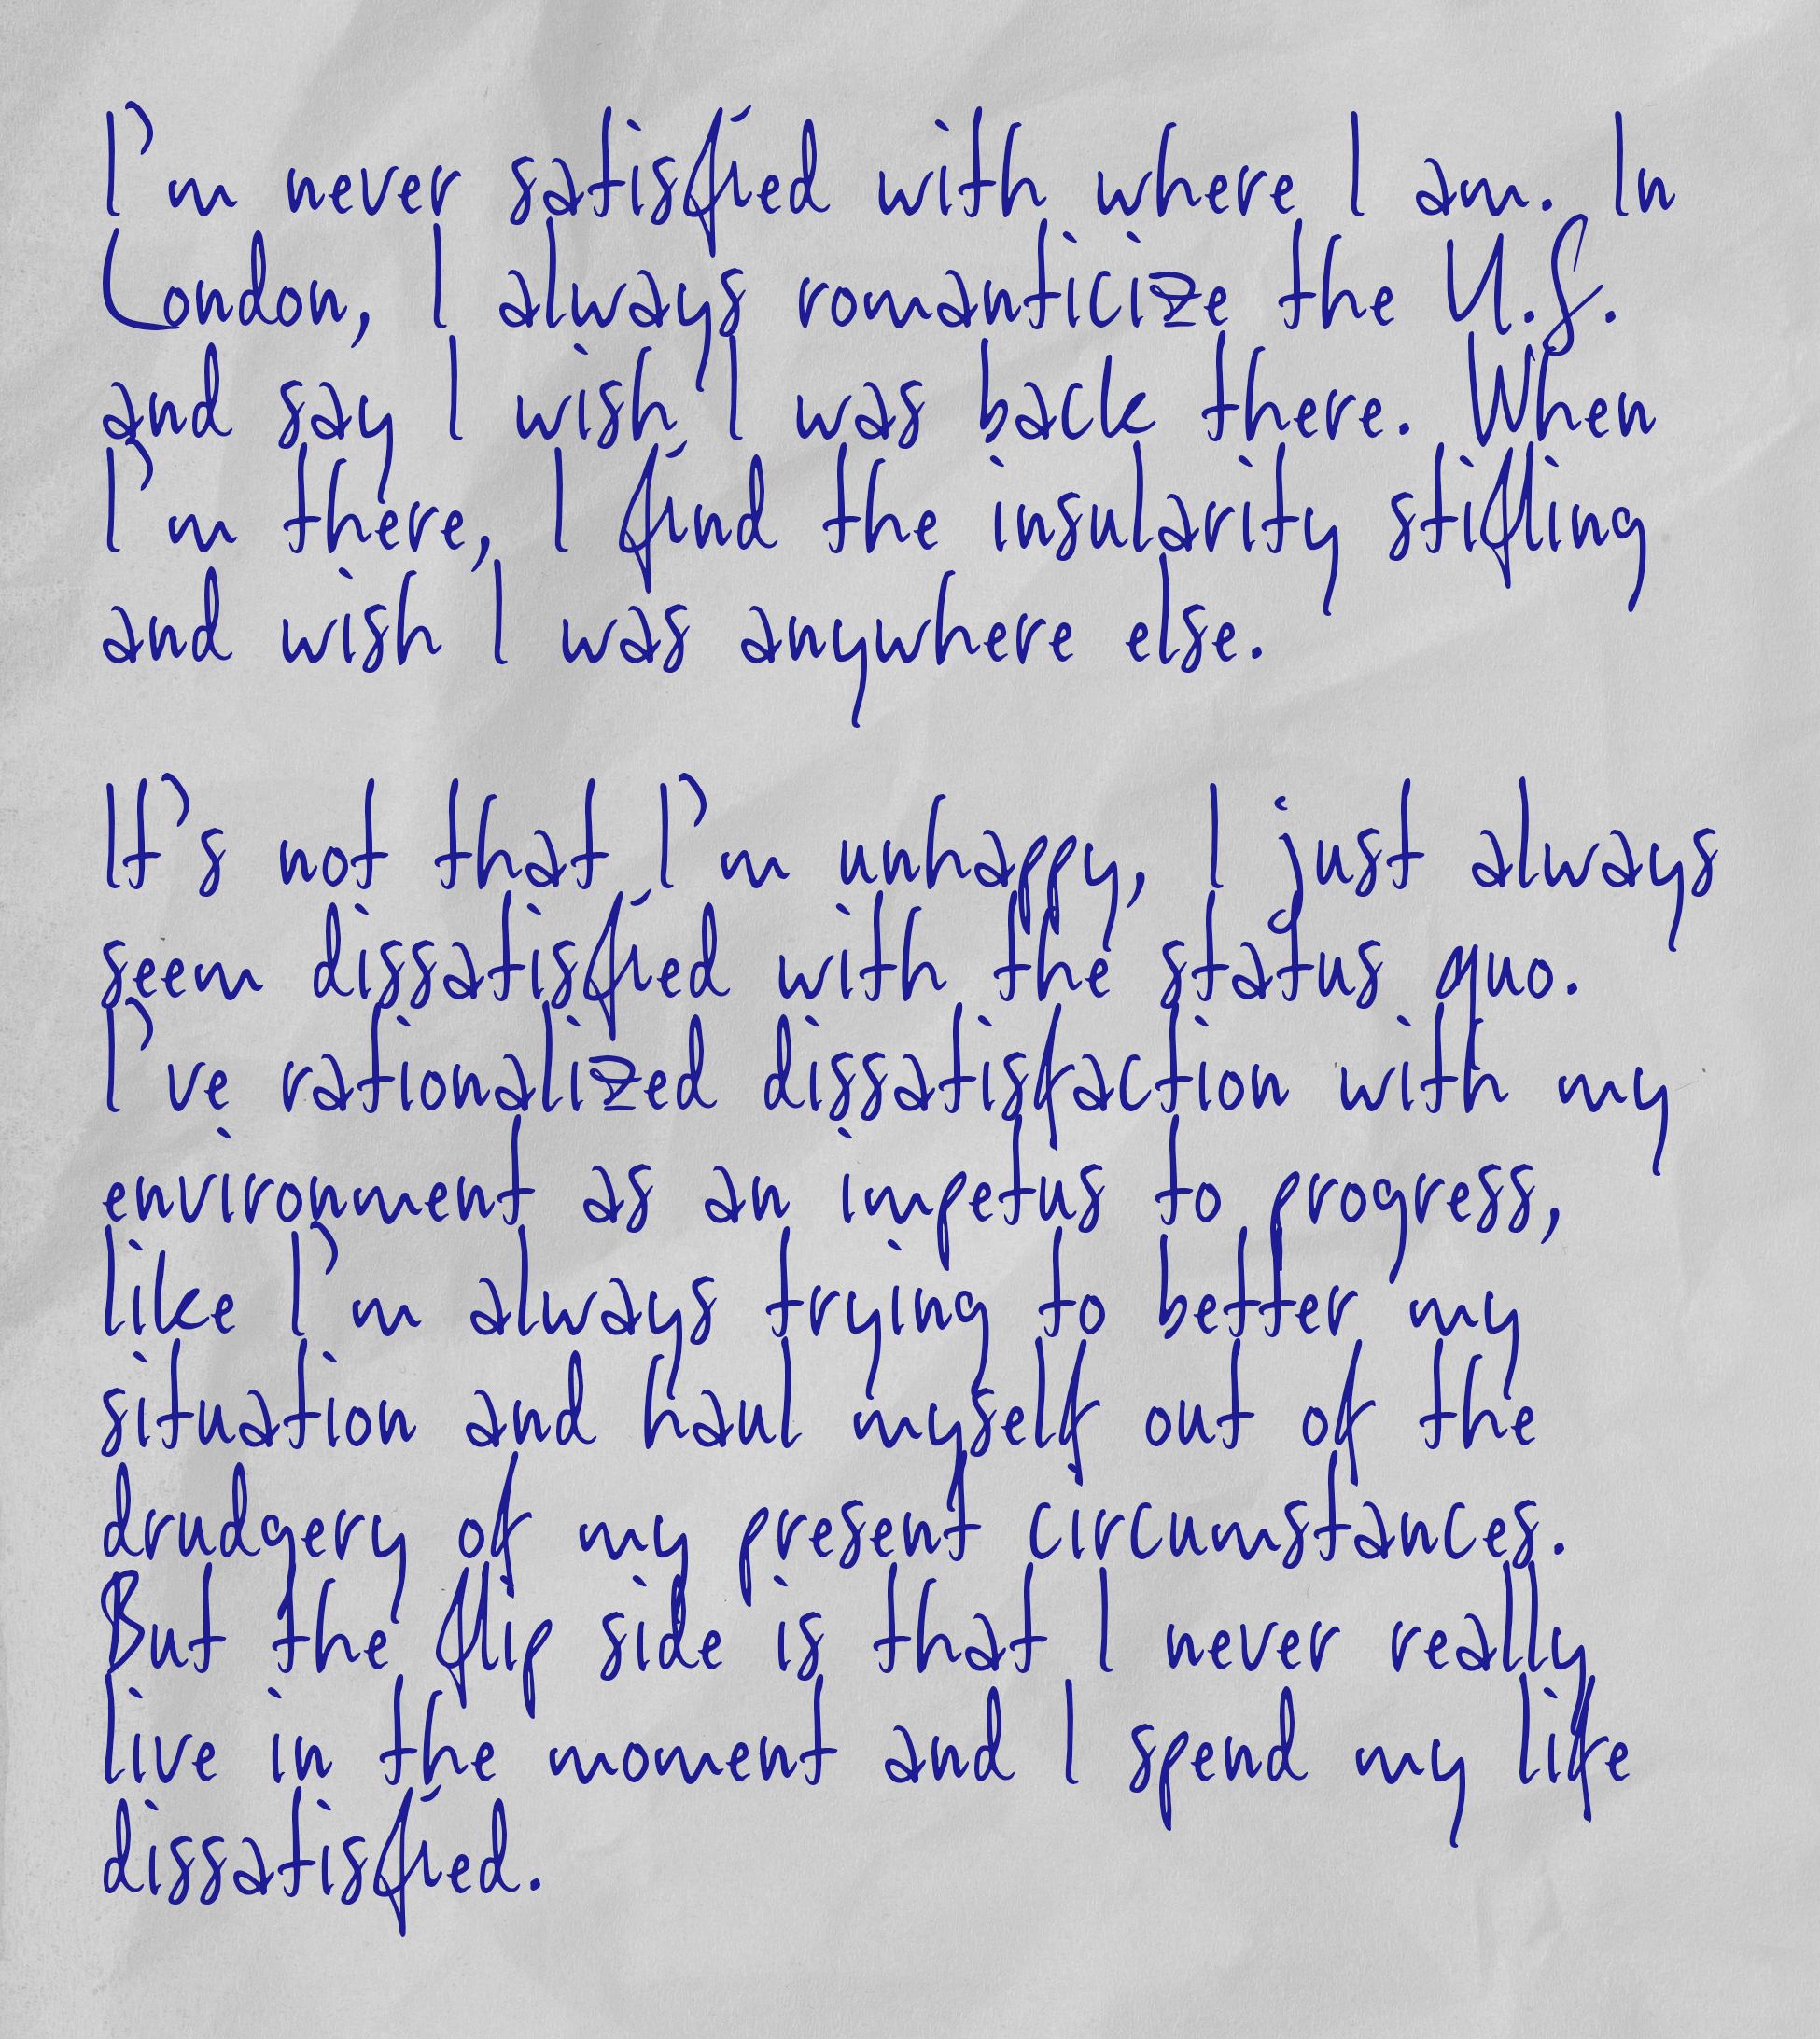 I'm never satisfied with where I am. In
London, I always romanticize the U.S.
and say I wish I was back there. When
I'm there, I find the insularity stifling
and wish I was anywhere else.

It's not that I'm unhappy, I just always
seem dissatisfied with the status quo.
I've rationalized dissatisfaction with my
environment as an impetus to progress,
like I'm always trying to better my
situation and haul myself out of the
drudgery of my present circumstances.
But the flip side is that I never really
live in the moment and I spend my life
dissatisfied.